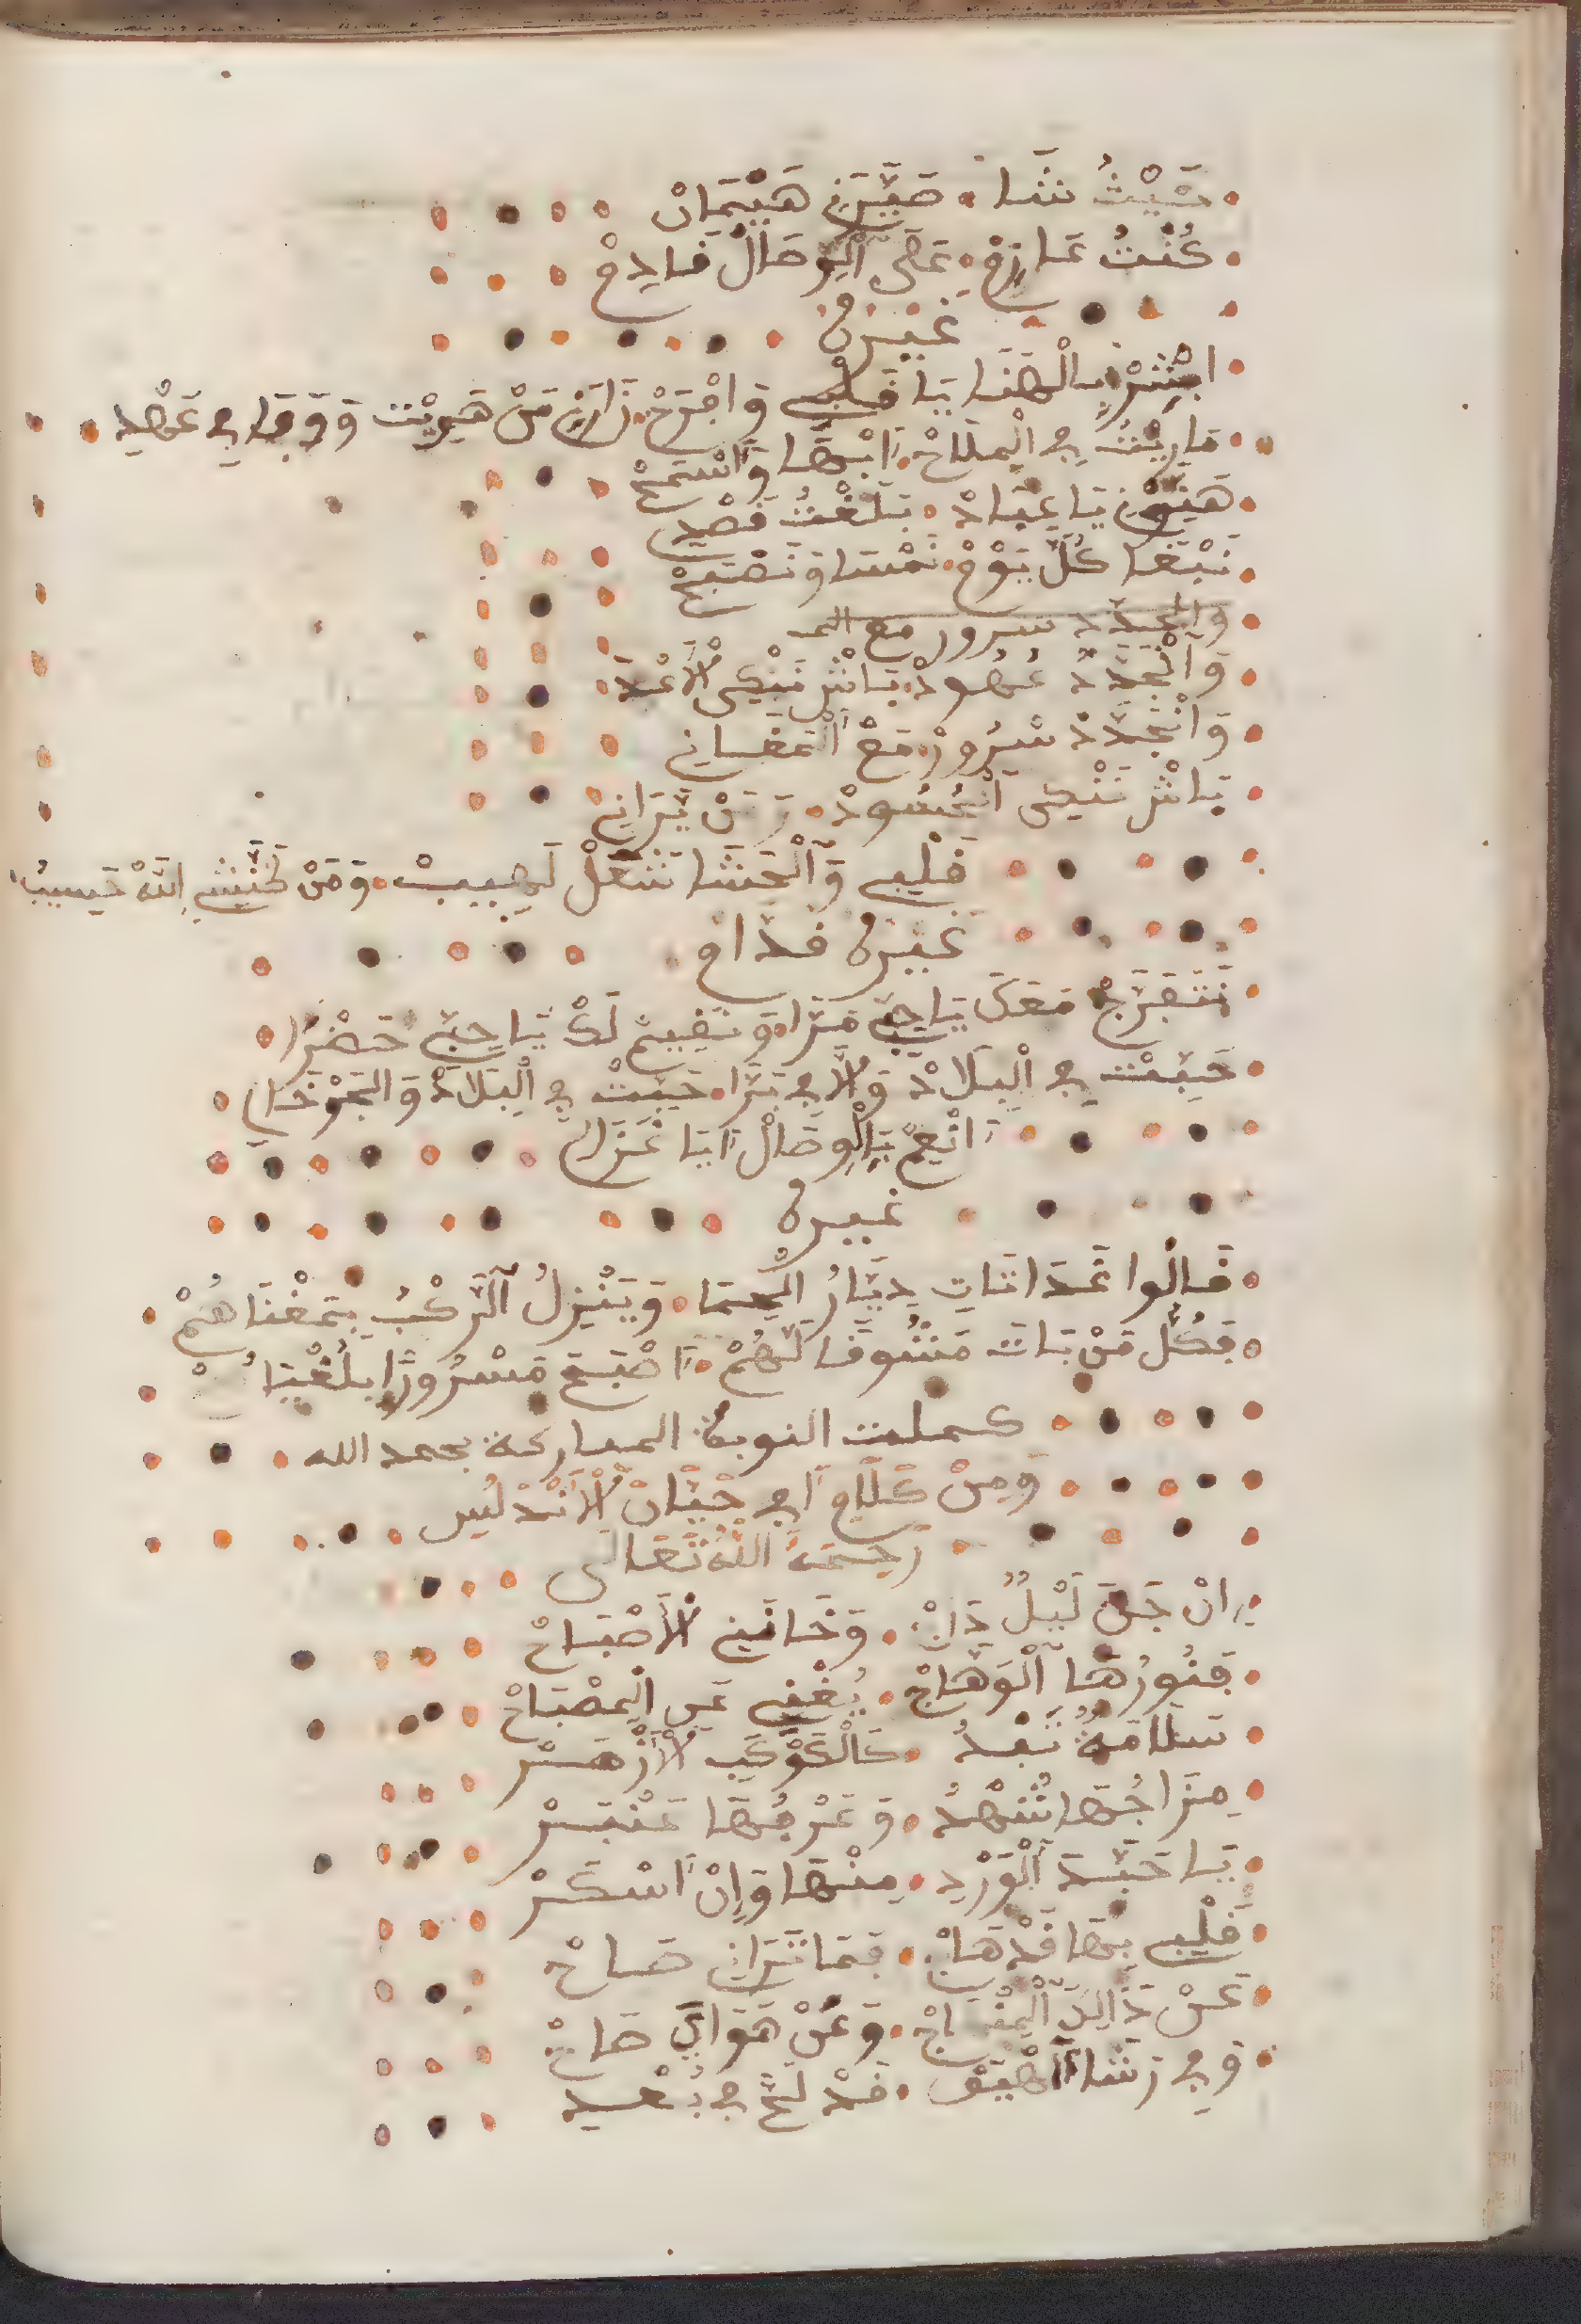 حَيْثُ نَشَا صَيَّرَنِي هَيْمَانْ
كُنْتُ عَازِمْ عَلَى الْوِصَالْ قَادِمْ
غَيْرُهُ
ابْشِرْ بِالْهَنَا يَا قَلْبِي وَافْرَحْ زَارَنِي مَنْ هَوِيْت وَوَفَا لِي عَهْدِي
مَا رِيْتُ فِي الْمِلَاحْ ابْهَا وَاسْمَحْ
هَنِّيُونِي يَا عِبَادْ بَلَغْتُ قَصْدِي
نَبْقَا كُلَّ يَوْمْ نَمْسَا وَنَصْبَحْ
وانجدد سرور مع
وَانْجَدَّدْ عُهُودْ بَاشْ نَنْكِي الْأَعْدَا
وَانْجَدَّدْ سُرُورْ مَعْ
بَاشْ نَنْكِي الْحُسُودْ يَرَانِي
قَلْبِي وَالْحَشَا شَعَلْ لَهِيبْ وَمَنْ اللهْ حَسِيبُ
غَيْرُهُ قدام
نَتْفَرَّجْ مَعَكَ يَا حِبِّي مَرَّا وَنْقِيمْ لَكْ يَا حِبِّي حَضْرَا
حَبَيْت فِي الْبِلَادْ وَلَّا فِي بَرَّا حَبَيْتْ فِي الْبِلَادْ وَالْجَوْ خَالِي
انْعِمْ بِالْوِصَالْ ايَا غَزَالِي
غيره
قَالُوا غَدَا نَاتِي دِيَارُ الْحِمَا وَيَنْزِلُ الرَّكْبُ بِمَغْنَاهُمْ
فَكُلُّ مَنْ بَاتَ مَشُوقًا لَهُمْ اصْبَحَ مَسْرُورًا بِلُقْيَاهُمْ
كملت النوبة المباركة بحمد الله
وَمِنْ كَلَامِ ابِي حَيَّانْ الْأَنْدَلُسِي
رَحِمَهُ اللهُ تَعَالَى
إِنْ جَنَّ لَيْلٌ دَاجْ وَخَانَنِي الْأَصْبَاحْ
فَنُورُهَا الْوَهَّاجْ يُغْنِي عَنِ الْمِصْبَاحْ
سُلَافَةٌ تَبْدُ كَالْكَوْكَبِ الْأَزْهَرْ
مِزَاجُهَا شُهْدُ وَعَرْفُهَا عَنْبَرْ
يَا حَبَّذَا الْوَرْدِ مِنْهَا وَإِنْ اسْكَرْ
قَلْبِي بِهَا قَدْ هَاجْ فَمَا تَرَانِي صَاحْ
عَنْ ذَالِكَ الْمِنْهَاجْ وَعَنْ هَوَايَ صَاحْ
وَبِي رَشَا اهْيَفْ قَدْ لَجَّ فِي بُعْدِي